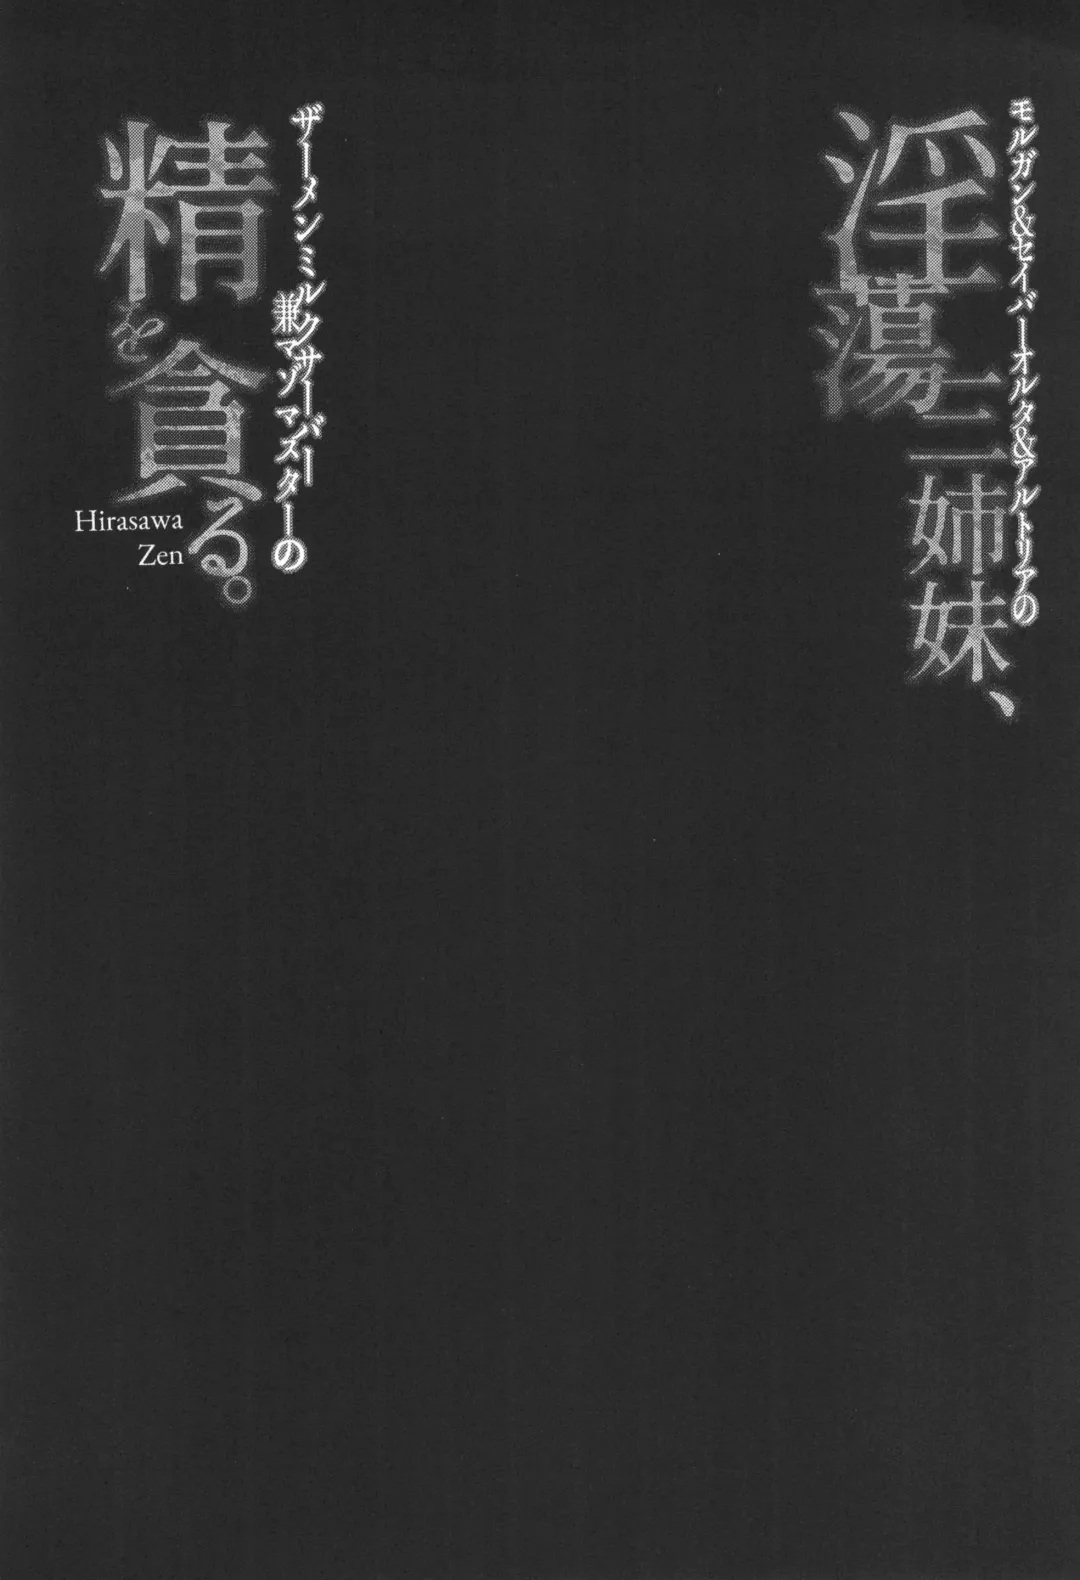 モルガン&セイバーオルタ&アルトリアの
淫蕩三姉妹、
ザーメンミルクサーバー
兼マゾマスターの
精を貪る。
Hirasawa
Zen